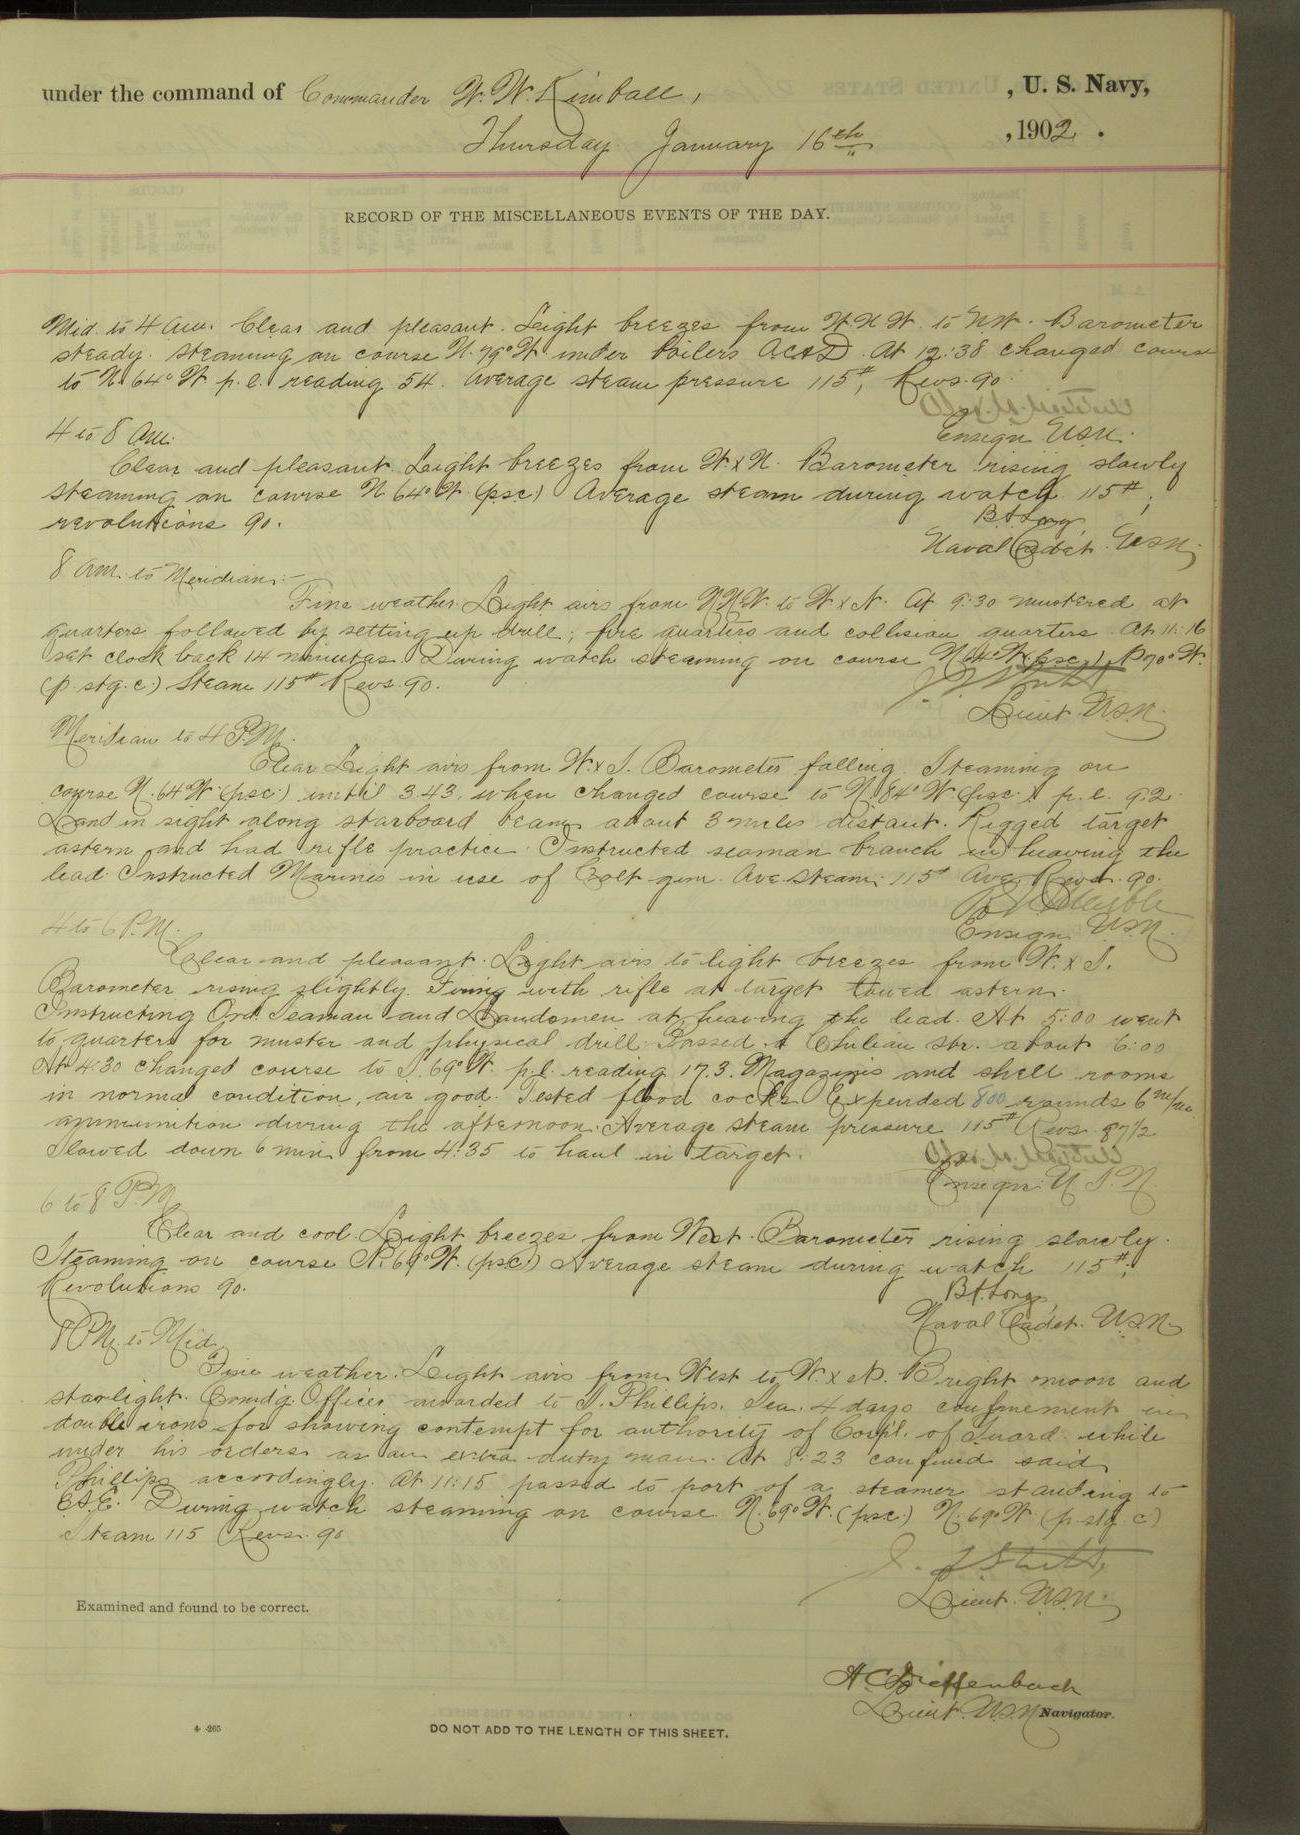 under the command of Commander W. W. Kimball, , U. S. Navy,
Thursday January 16th , 1902 .
RECORD OF THE MISCELLANEOUS EVENTS OF THE DAY.
Mid. to 4 a.m. Clear and pleasant. Light breezes from W.N.W. to NW. Barometer
steady. Steaming on course N. 79° W. under boilers A C & D. At 12:38 changed course
to N. 64° W. p.c. reading 54. Average steam pressure 115#, Revs. 90.
Ensign U.S.N.
4 to 8 a.m.
Clear and pleasant. Light breezes from W. x N. Barometer rising slowly
steaming on course N. 64° W. (psc) Average steam during watch 115#,
revolutions 90.
Naval Cadet. U.S.N.
8 a.m. to Meridian:-
Fine weather. Light airs from N.N.W. to W. x N. At 9:30 mustered at
quarters followed by setting up drill; fire quarters and collision quarters. At 11:16
set clock back 14 minutes. During watch steaming on course N 64° W (psc), N 70° W.
(p. stg. c.) Steam 115# Revs. 90.
Lieut. U.S.N.
Meridian to 4 P.M.
Clear. Light airs from W. x S. Barometer falling. Steaming on
course N. 64° W (psc.) until 3.43. when changed course to N. 84° W (psc.) p.c. 92.
Land in sight along starboard beam about 3 miles distant. Rigged target
astern and had rifle practice. Instructed seaman branch in heaving the
lead. Instructed Marines in use of Colt gun. Ave. steam: 115# Ave. Revs. 90.
Ensign U.S.N.
4 to 6 P.M.
Clear and pleasant. Light airs to light breezes from W. x S.
Barometer rising slightly. Firing with rifle at target towed astern.
Instructing Ord. Seaman and Landsmen at heaving the lead. At 5:00 went
to quarters for muster and physical drill. Passed a Chilean str. about 6:00
At 4:30 changed course to S. 69° W. p.c. reading 17.3. Magazines and shell rooms
in normal condition, air good. Tested flood cocks. Expended 800 rounds 6 m/m.
ammunition during the afternoon. Average steam pressure 115# Revs. 87½
Slowed down 6 min from 4:35 to haul in target.
Ensign. U.S.N.
6 to 8 P.M.
Clear and cool. Light breezes from West. Barometer rising slowly.
Steaming on course N. 69° W. (psc.) Average steam during watch 115#;
Revolutions 90.
Naval Cadet. U.S.N.
8 P.M. to Mid.
Fine weather. Light airs from West to W. x N. Bright moon and
starlight. Comd'g. Officer awarded to J. Phillips, Sea. 4 days confinement in
double irons for showing contempt for authority of Corp'l. of Guard while
under his orders as an extra duty man. At 8:23 confined said
Phillips accordingly. At 11:15 passed to port of a steamer standing to
E.S.E. During watch steaming on course N. 69° W. (psc.) N. 69° W (p. stg. c)
Steam 115 Revs. 90
Lieut. U.S.N.
Examined and found to be correct.
A C Dieffenbach
Lieut. U.S.N. Navigator.
DO NOT ADD TO THE LENGTH OF THIS SHEET.